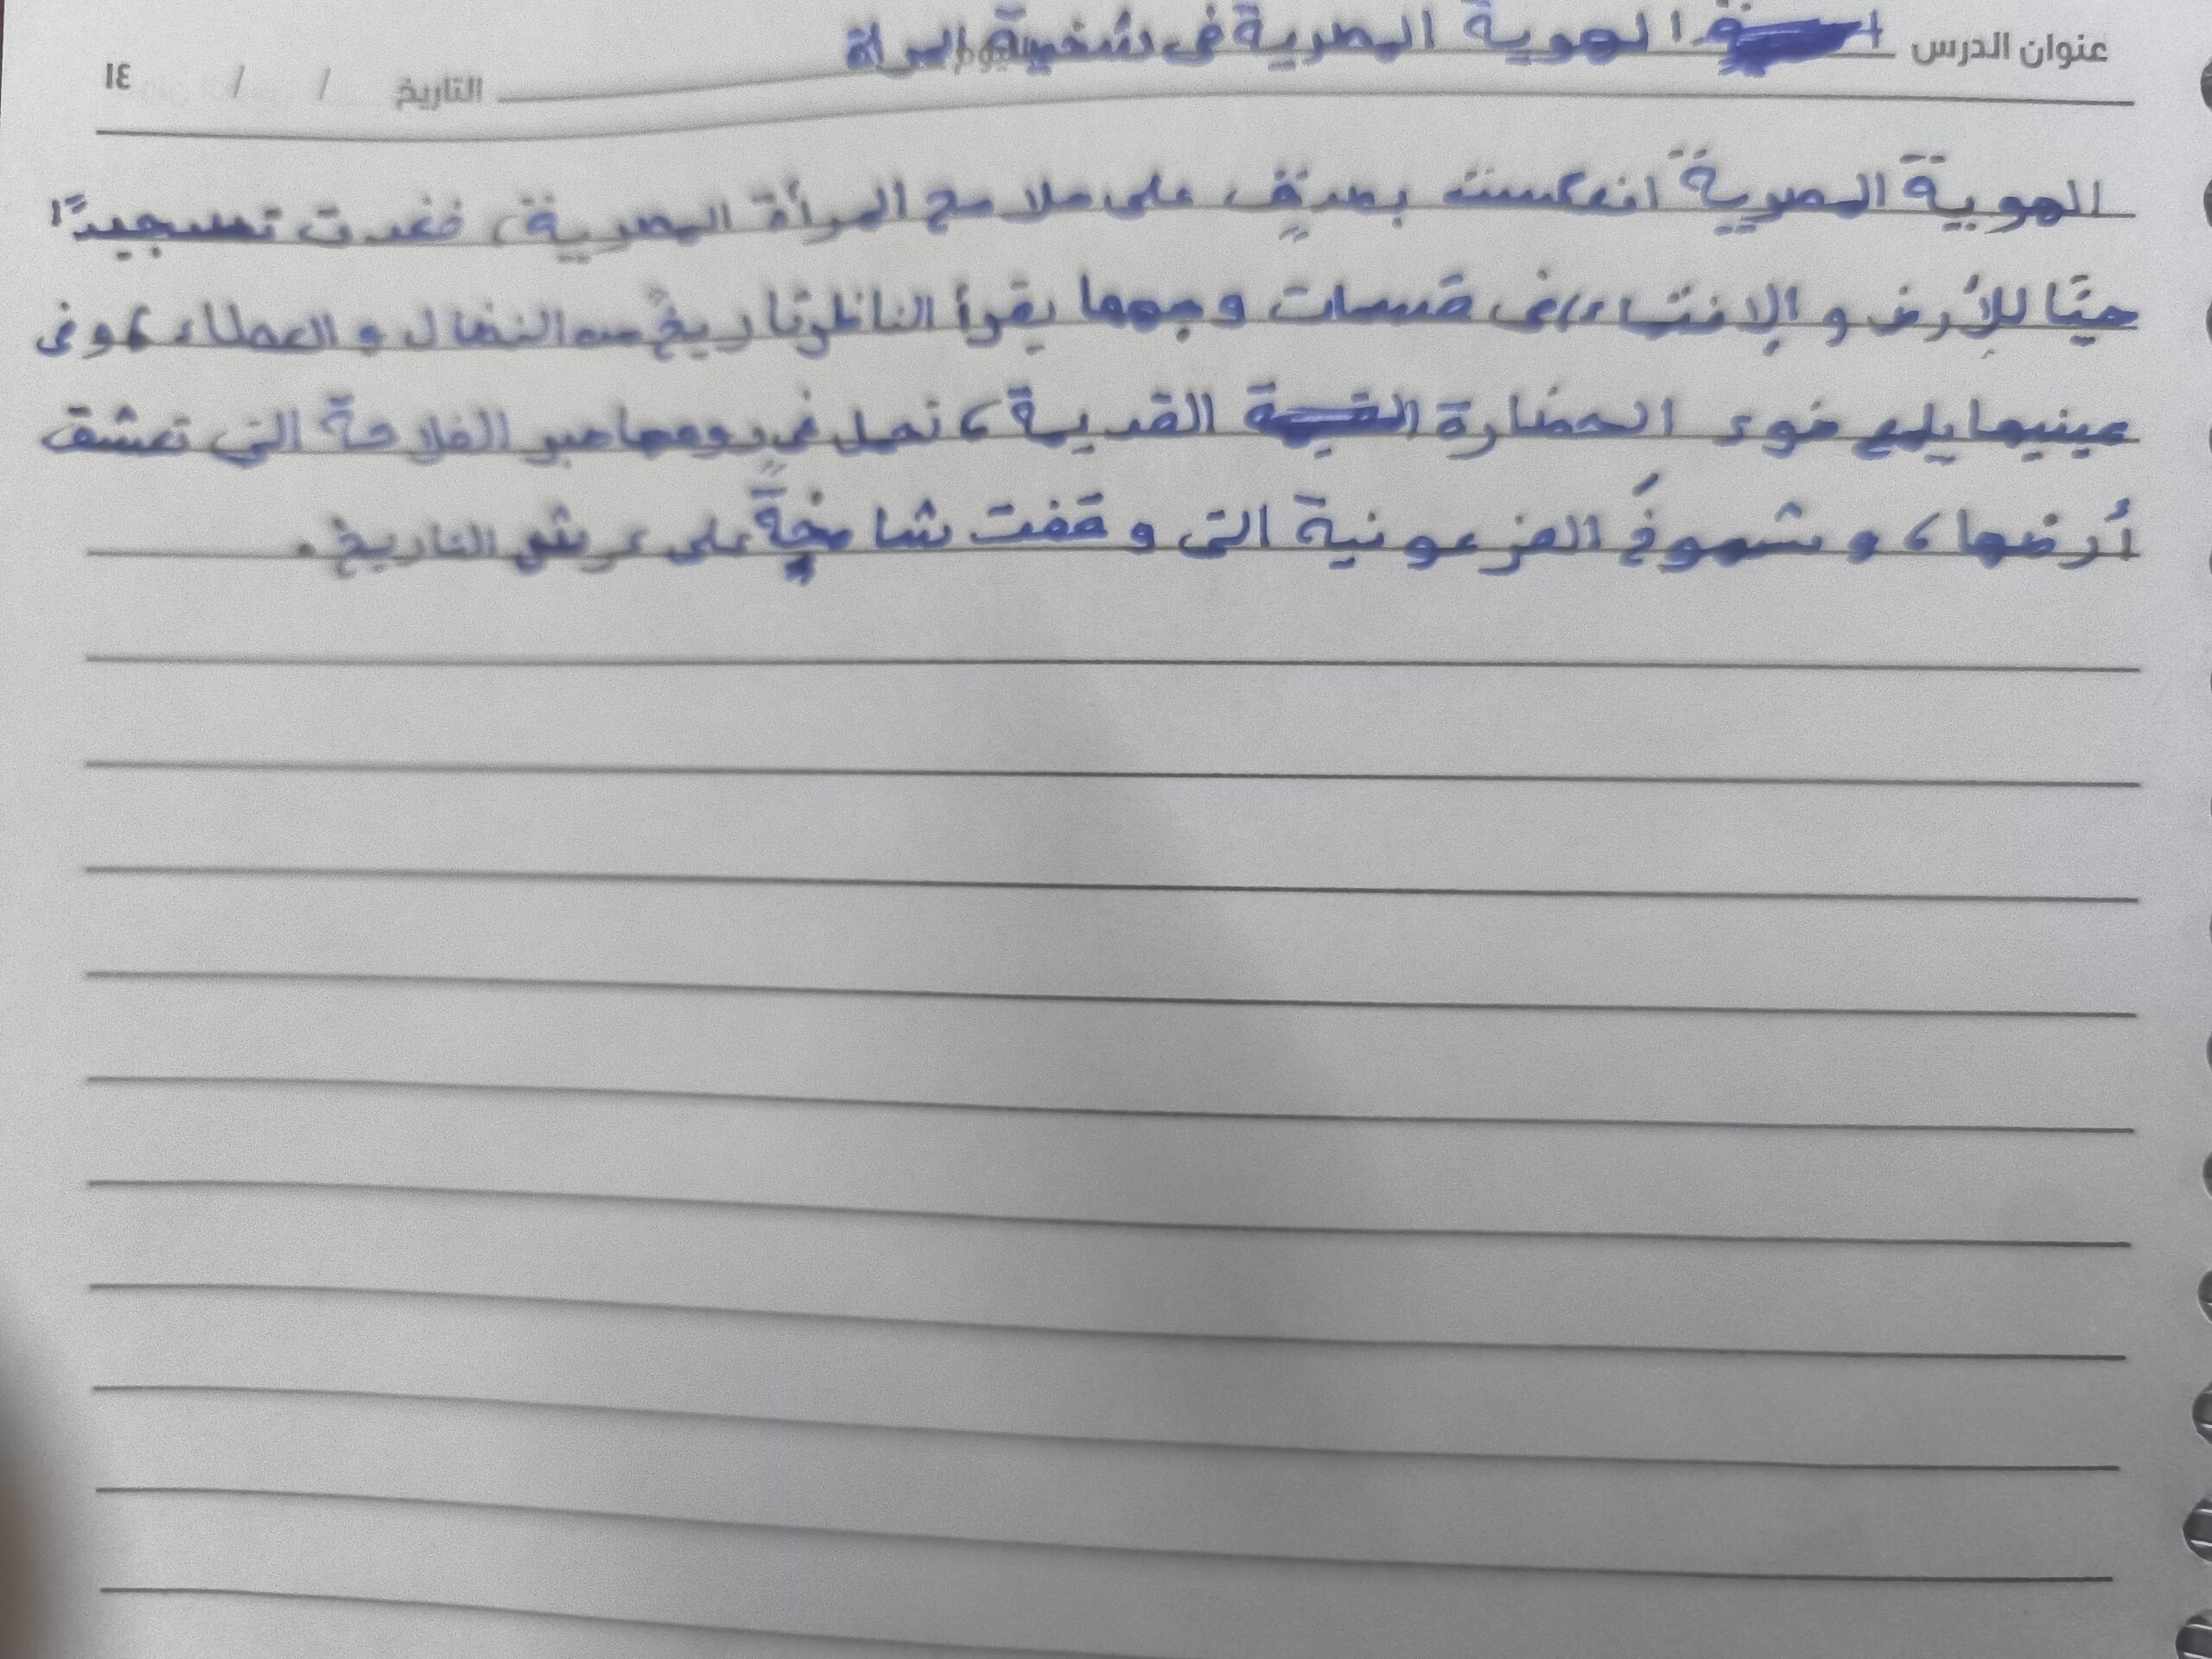 عنوان الدرس الهوية المصرية فى شخصية المرأة
التاريخ / / ١٤
الهوية المصرية انعكست بصدقٍ على ملامح المرأة المصرية، فغدت تجسيدًا
حيًّا للأرض و الإنتماء، فى قسمات وجهها يقرأ الناظر تاريخًا من النضال و العطاء، وفى
عينيها يلمع ضوء الحضارة القديمة، تحمل فى روحها صبر الفلاحة التى تعشق
أرضها، و شموخَ الفرعونية التى وقفت شامخةً على عرش التاريخ.